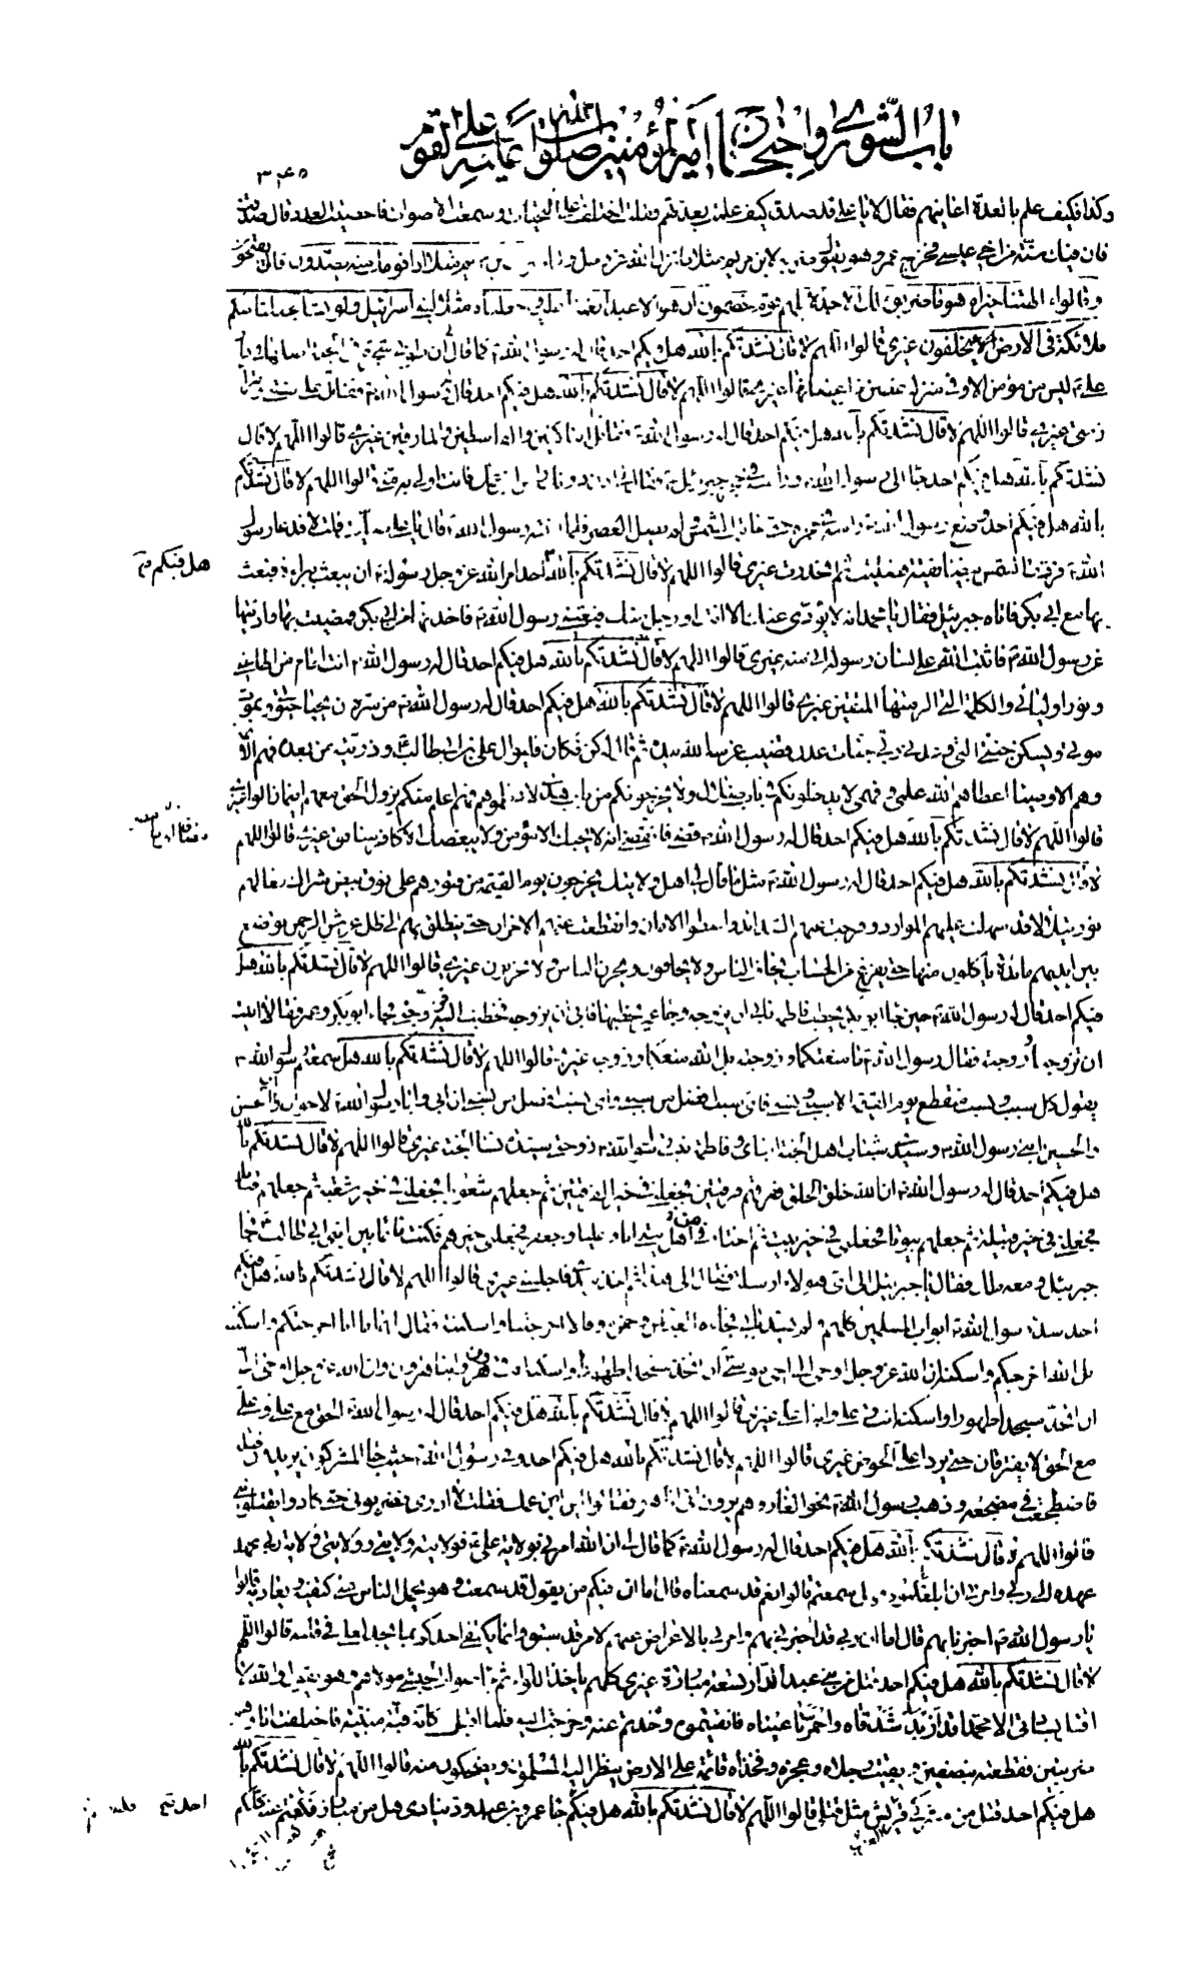 باب الشورى واحتجاج امير المؤمنين صلوات الله عليه على القوم
٣٤٥
وكذا فكيف علم بالعدة اعانهم فقال لا يا على قد صدق كيف علمت بعدتهم فقلت اختلفت على التحيات وسمعت الاصوات فاحصيت العدد قال صدقت
فان فيك سنة من اخى عيسى فخرج عمرو وهو يقول لابن مريم مثلا فانزل الله عز وجل اذا قومك منه يصدون قال يضجون
وقالوا ءالهتنا خير ام هو ما ضربوه لك الا جدلا بل هم قوم خصمون ان هو الا عبد انعمنا عليه وجعلناه مثلا لبنى اسرائيل ولو نشاء لجعلنا منكم
ملائكة فى الارض يخلفون غيرى قالوا اللهم لا قال نشدتكم بالله هل فيكم احد قال له رسول الله كما قال ان طوبى شجرة فى الجنة اصلها فى دار
على ليس من مؤمن الا وفى منزله غصن من اغصانها غيرى قالوا اللهم لا قال نشدتكم بالله هل فيكم احد قال له رسول الله تقاتل على سنتى وتبر
ذمتى غيرى قالوا اللهم لا قال نشدتكم بالله هل فيكم احد قال له رسول الله تقاتل الناكثين والقاسطين والمارقين غيرى قالوا اللهم لا قال
نشدتكم بالله هل فيكم احد جاء الى رسول الله وراسه فى حجر جبرئيل فقال ادن دونك راس ابن عمك فانت اولى به منى قالوا اللهم لا قال نشدتكم
بالله هل فيكم احد وضع رسول الله راسه فى حجره حتى غابت الشمس ولم يصل العصر فلما انتبه رسول الله قال يا على صليت قلت لا فدعا رسول
الله فردت الشمس بيضاء نقية فصليت ثم انحدرت غيرى قالوا اللهم لا قال نشدتكم بالله احد امر الله عز وجل رسوله ان يبعث ببراءة فبعث
هل فيكم
بها مع ابى بكر فاتاه جبرئيل فقال يا محمد انه لا يؤدى عنك الا انت او رجل منك فبعثنى رسول الله فاخذتها من ابى بكر فمضيت بها واديتها
عن رسول الله فاثبت الله على لسان رسوله انى منه غيرى قالوا اللهم لا قال نشدتكم بالله هل فيكم احد قال له رسول الله انت امام من اطاعنى
ونور اوليائى والكلمة التى الزمتها المتقين غيرى قالوا اللهم لا قال نشدتكم بالله هل فيكم احد قال له رسول الله من سره ان يحيا حيوتى ويموت
موتى ويسكن جنتى التى وعدنى ربى جنات عدن قضيب غرسه الله بيده ثم قال له كن فكان فليوال على بن ابى طالب وذريته من بعده فهم الائمة
وهم الاوصياء اعطاهم الله علمى وفهمى لا يدخلونكم فى باب ضلال ولا يخرجونكم من باب هدى لا تعلموهم فهم اعلم منكم يزول الحق معهم اينما زالوا غيرى
قالوا اللهم لا قال نشدتكم بالله هل فيكم احد قال له رسول الله قضى فانقضى انه لا يحبك الا مؤمن ولا يبغضك الا كافر منافق غيرى قالوا اللهم
لا قال نشدتكم بالله هل فيكم احد قال له رسول الله مثل ما قال لى اهل ولايتك يخرجون يوم القيمة من قبورهم على نوق بيض شراك نعالهم
نور يتلألأ قد سهلت عليهم الموارد وفرجت عنهم الشدائد واعطوا الامان وانقطعت عنهم الاحزان حتى ينطلق بهم الى ظل عرش الرحمن توضع
بين ايديهم مائدة ياكلون منها حتى يفرغ من الحساب يخاف الناس ولا يخافون ويحزن الناس ولا يحزنون غيرى قالوا اللهم لا قال نشدتكم بالله هل
فيكم احد قال له رسول الله حين جاء ابو بكر يخطب فاطمة فابى ان يزوجه وجاء عمر يخطبها فابى ان يزوجه فخطبت اليه فزوجنى فجاء ابو بكر وعمر فقالا ابيت
ان تزوجنا وزوجته فقال رسول الله ما منعتكما وزوجته بل الله منعكما وزوجه غيرى قالوا اللهم لا قال نشدتكم بالله هل سمعتم رسول الله
يقول كل سبب ونسب منقطع يوم القيمة الا سببى ونسبى فاى سبب افضل من سببى واى نسب افضل من نسبى ان ابى وابا رسول الله لاخوان وان الحسن
والحسين ابنى رسول الله وسيدى شباب اهل الجنة ابناى وفاطمة بنت رسول الله زوجتى سيدة نساء الجنة غيرى قالوا اللهم لا قال نشدتكم بالله
هل فيكم احد قال له رسول الله ان الله خلق الخلق ففرقهم فرقتين فجعلنى فى خير الفرقتين ثم جعلهم شعوبا فجعلنى فى خير شعبة ثم جعلهم قبائل
فجعلنى فى خير قبيلة ثم جعلهم بيوتا فجعلنى فى خير بيت ثم اختار من اهل بيتى انا وعليا وجعفرا فجعلنى خيرهم فكنت نائما بين ابنى ابى طالب فجاء
جبرئيل ومعه ملك فقال يا جبرئيل الى اى هؤلاء ارسلت فقال الى هذا ثم اخذ بيدى فاجلسنى غيرى قالوا اللهم لا قال نشدتكم بالله هل فيكم
احد سد رسول الله ابواب المسلمين كلهم ولم يسد بابى فجاءه العباس وحمزة وقالا اخرجتنا واسكنته فقال لهما ما انا اخرجتكم واسكنته
بل الله اخرجكم واسكنه ان الله عز وجل اوحى الى اخى موسى ان اتخذ مسجدا طهورا واسكنه انت وهرون وابنا هرون وان الله عز وجل اوحى الى
ان اتخذ مسجدا طهورا واسكنه انت وعلى وابنا على غيرى قالوا اللهم لا قال نشدتكم بالله هل فيكم احد قال له رسول الله الحق مع على وعلى
مع الحق لا يفترقان حتى يردا على الحوض غيرى قالوا اللهم لا قال نشدتكم بالله هل فيكم احد وقى رسول الله حيث جاء المشركون يريدون قتله
فاضطجعت فى مضجعه وذهب رسول الله نحو الغار وهم يرون انى انا هو فقالوا اين ابن عمك فقلت لا ادرى فضربونى حتى كادوا يقتلوننى
قالوا اللهم لا قال نشدتكم بالله هل فيكم احد قال له رسول الله كما قال لى ان الله امرنى بولاية على فولايته ولايتى وولايتى ولاية ربى عهد
عهده الى ربى وامرنى ان ابلغكموه فهل سمعتم قالوا نعم قد سمعناه قال اما ان فيكم من يقول قد سمعت وهو يحمل الناس على كتفيه ويعاديه قالوا
يا رسول الله اخبرنا بهم قال اما ان ربى قد اخبرنى بهم وامرنى بالاعراض عنهم لامر قد سبق وانما يكتفى احدكم بما يجد لعلى فى قلبه قالوا اللهم
لا قال نشدتكم بالله هل فيكم احد قتل من بنى عبد الدار تسعة مبارزة غيرى كلهم ياخذ اللواء ثم جاء صواب الحبشى مولاهم وهو يقول والله لا
اقتل بسادتى الا محمدا قد ازبد شدقاه واحمرتا عيناه فاتقيتموه وحدتم عنه وخرجت اليه فلما اقبل كانه قبة مبنية فاختلفت انا وهو
ضربتين فقطعته بنصفين وبقيت رجلاه وعجزه وفخذاه قائمة على الارض ينظر اليه المسلمون ويضحكون منه قالوا اللهم لا قال نشدتكم بالله
هل فيكم احد قتل من مشركى قريش مثل قتلى قالوا اللهم لا قال نشدتكم بالله هل فيكم احد جاء عمرو بن عبد ود ينادى هل من مبارز فكعتم عنه كلكم